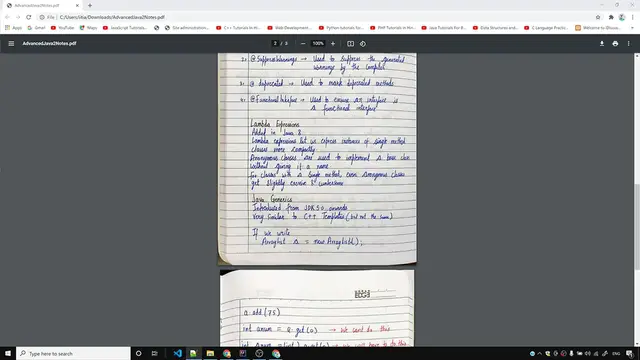 C:/Users/Atai/Downloads/AdvancedJava2Notes.pdf
Apps
C++ Tutorials In H
Web Development
Python Tutorials In
PHP Tutorials In H
JavaScript Tutorials
Java Tutorials For B
Data Structures and
C Language Practic
Welcome to Discuss
AdvancedJava2Notes.pdf
2 / 3
100%
2.) @SuppressWarnings → Used to suppress the generated
warnings by the compiler
3.) @ deprecated → Used to mark deprecated methods
4.) @FunctionalInterface → Used to ensure an interface is
a functional interface
Lambda Expressions
Added in Java 8
Lambda expressions let us express instances of single method
classes more compactly
Anonymous classes are used to implement a base class
without giving it a name
For classes with a single method, even anonymous classes
get slightly excessive & cumbersome
Java Generics
Introduced from JDK 5.0 onwards
Very similar to C++ Templates (but not the same)
If we write
ArrayList a = new ArrayList();
a. add (75)
int anum = a. get (0) → We cant do this
int anum = (int) a.get(0) → We will have to do this
Type here to search